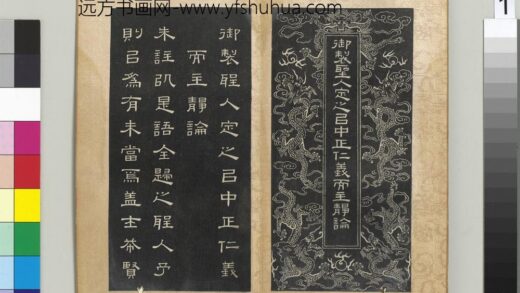 远方书画网- www.yfshuhua.com
1
御製聖人定之㠯中正仁義而主靜論
御製聖人定之㠯中正仁義
而主靜論
朱註是語全歸之聖人予
則㠯為有未當焉蓋士希賢